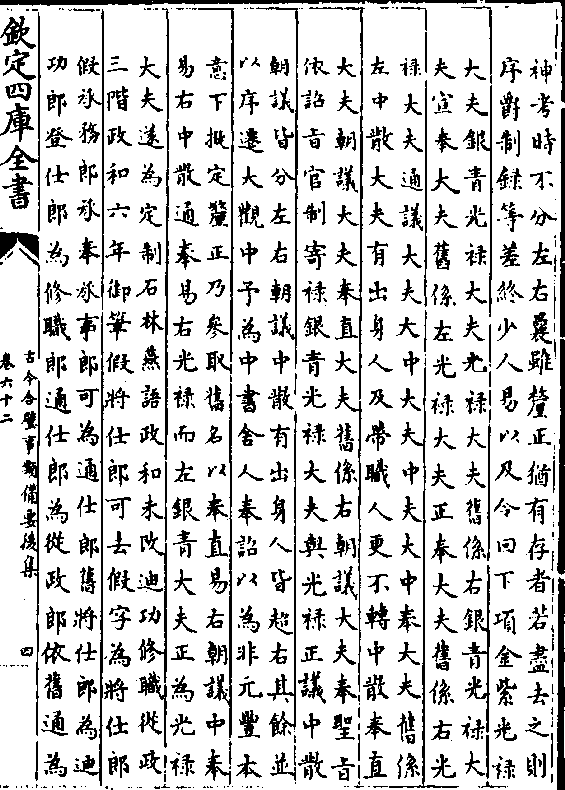 神考時不分左右曩雖釐正猶有存者若盡去之則
序爵制録等差終少人易以及今回下項金紫光禄
大夫銀青光禄大夫光禄大夫舊係右銀青光禄大
夫宣奉大夫舊係左光禄大夫正奉大夫舊係右光
禄大夫通議大夫大中大夫中大夫大中奉大夫舊係
左中散大夫有出身人及帶職人更不轉中散奉直
大夫朝議大夫奉直大夫舊係右朝議大夫奉聖旨
依詔旨官制寄禄銀青光禄大夫與光禄正議中散
朝議皆分左右朝議中散有出身人皆超右其餘並
以序遷大觀中予為中書舍人奉詔以為非元豐本
意下擬定釐正乃參取舊名以奉直易右朝議中奉
易右中散通奉易右光禄而左銀青大夫正為光禄
大夫遂為定制石林燕語政和末改迪功修職從政
三階政和六年御筆假將仕郎可去假字為將仕郎
假承務郎承奉承事郎可為通仕郎舊將仕郎為迪
功郎登仕郎為修職郎通仕郎為從政郎依舊通為
欽定四庫全書
古今合璧事類備要後集
卷六十二
四